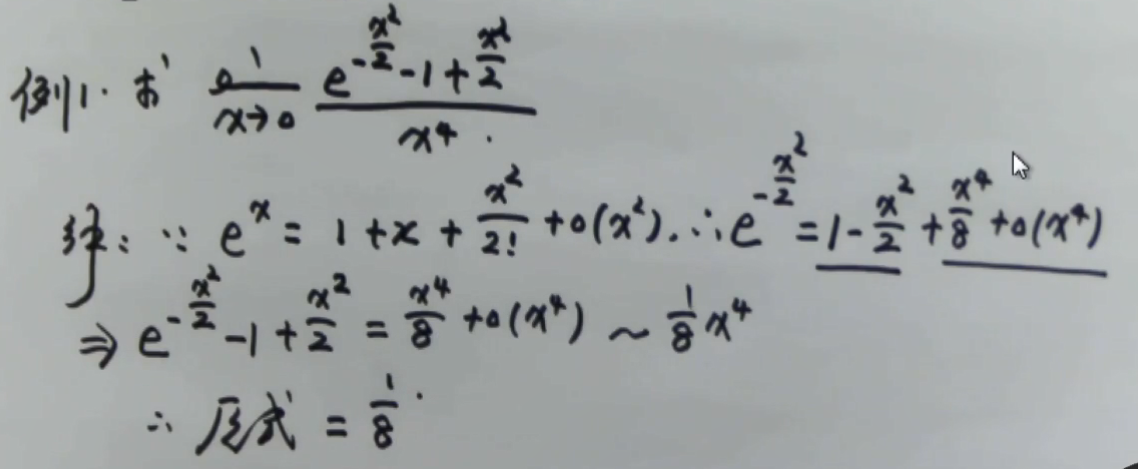 例1. 求 lim x→0 (e^(-x²/2) - 1 + x²/2) / x⁴.
解: ∵ e^x = 1 + x + x²/2! + o(x²). ∴ e^(-x²/2) = 1 - x²/2 + x⁴/8 + o(x⁴)
⇒ e^(-x²/2) - 1 + x²/2 = x⁴/8 + o(x⁴) ~ 1/8 x⁴
∴ 原式 = 1/8.